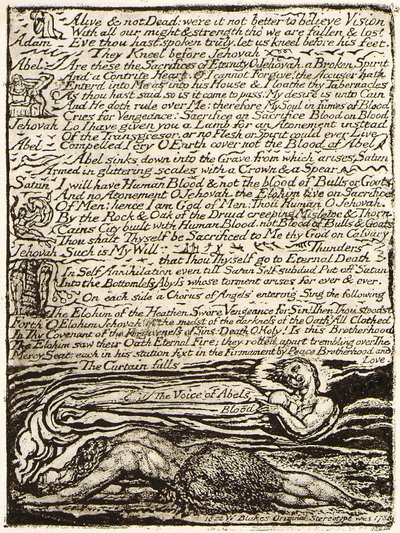 Alive & not Dead: were it not better to believe Vision
With all our might & strength tho we are fallen & lost
Adam Eve thou hast spoken truly. let us kneel before his feet.
They Kneel before Jehovah
Abel Are these the Sacrifices of Eternity O Jehovah, a Broken Spirit
And a Contrite Heart. O I cannot Forgive! the Accuser hath
Enterd into Me as into his House & I loathe thy Tabernacles
As thou hast said, so is it come to pass: My desire is unto Cain
And He doth rule over Me: therefore My Soul in fumes of Blood
Cries for Vengeance: Sacrifice on Sacrifice Blood on Blood
Jehovah Lo I have given you a Lamb for an Atonement instead
Of the Transgresor, or no Flesh or Spirit could ever Live
Abel Compelled I cry O Earth cover not the Blood of Abel
Abel sinks down into the Grave from which arises Satan
Armed in glittering scales with a Crown & a Spear
Satan I will have Human Blood & not the blood of Bulls or Goats
And no Atonement O Jehovah the Elohim live on Sacrifice
Of Men: hence I am God of Men: Thou Human O Jehovah.
By the Rock & Oak of the Druid creeping Mistletoe & Thorn
Cains City built with Human Blood, not Blood of Bulls & Goats
Thou shalt Thyself be Sacrificed to Me thy God on Calvary
Jehovah Such is My Will Thunders
that Thou Thyself go to Eternal Death
In Self Annihilation even till Satan Self-subdud Put off Satan
Into the Bottomless Abyss whose torment arises for ever & ever.
On each side a Chorus of Angels entering Sing the following
The Elohim of the Heathen Swore Vengeance for Sin! Then Thou stoodst
Forth O Elohim Jehovah! in the midst of the darkness of the Oath! All Clothed
In Thy Covenant of the Forgiveness of Sins: Death O Holy! Is this Brotherhood
The Elohim saw their Oath Eternal Fire; they rolled apart trembling over The
Mercy Seat: each in his station fixt in the Firmament by Peace Brotherhood and Love.
The Curtain falls
The Voice of Abels
Blood
1822 W Blakes Original Stereotype was 1788